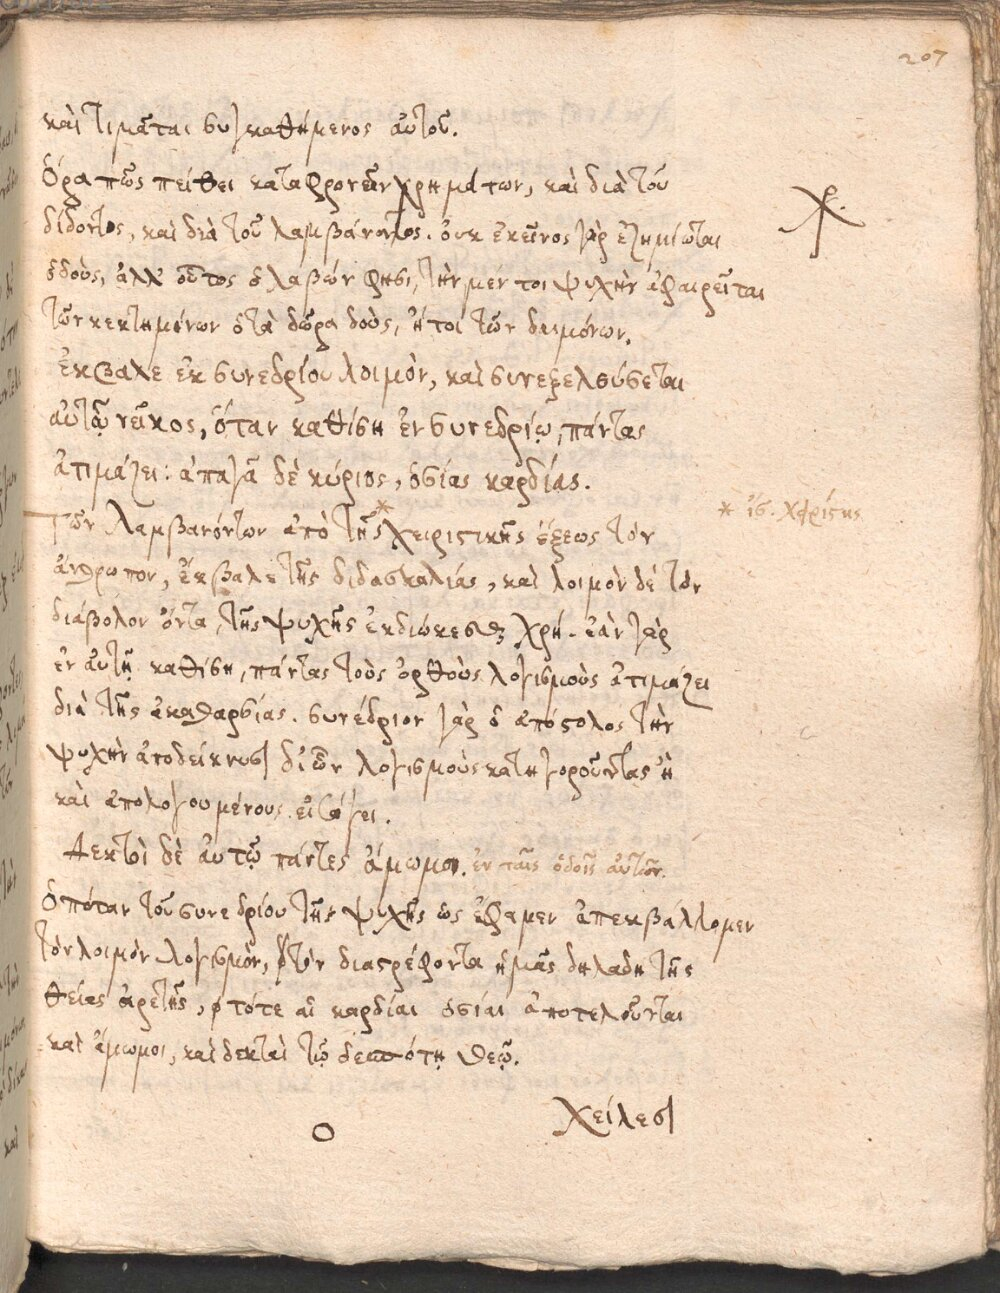 207
καὶ τιμᾶται συγκαθήμενος αὐτοῦ.
Ὅρα πῶς πείθει καταφρονεῖν χρημάτων, καὶ διὰ τοῦ
διδόντος, καὶ διὰ τοῦ λαμβάνοντος. οὐκ ἐκεῖνος γὰρ ἐζημίωται
ὁ δοὺς, ἀλλ' οὗτος ὁ λαβών φησι, τὴν μέν τοι ψυχὴν ἀφαιρεῖται
τῶν κεκτημένων ὁ τὰ δῶρα δοὺς, ἤτοι τῶν δαιμόνων.
Ἔκβαλε ἐκ συνεδρίου λοιμὸν, καὶ συνεξελεύσεται
αὐτῷ νεῖκος, ὅταν καθίσῃ ἐν συνεδρίῳ, πάντας
ἀτιμάζει: ἀγαπᾷ δὲ κύριος, ὁσίας καρδίας.
Τῶν λαμβανόντων ἀπὸ τῆς * χειριστικῆς ἕξεως τὸν
* ἴσ.
ἄνθρωπον, ἔκβαλε τῆς διδασκαλίας, καὶ λοιμὸν δὲ τὸν
διάβολον ὄντα, τῆς ψυχῆς ἐκδιώκεσθαι χρή. ἐὰν γὰρ
ἐν αὐτῇ καθίσῃ, πάντας τοὺς ὀρθοὺς λογισμοὺς ἀτιμάζει
διὰ τῆς ἀκαθαρσίας. συνέδριον γὰρ ὁ ἀπόστολος τὴν
ψυχὴν ἀποδείκνυσι δι' ὧν λογισμοὺς κατηγοροῦντας ἢ
καὶ ἀπολογουμένους εἰσάγει.
Δεκτοὶ δὲ αὐτῷ πάντες ἄμωμοι. ἐν ταῖς ὁδοῖς αὐτῶν.
Ὁπόταν τοῦ συνεδρίου τῆς ψυχῆς ὡς ἔφαμεν ἀπεκβάλλομεν
τὸν λοιμὸν λογισμὸν, τὸν διαστρέφοντα ἡμᾶς δηλαδὴ τῆς
θείας ἀρετῆς, τότε αἱ καρδίαι ὁσίαι ἀποτελοῦνται
καὶ ἄμωμοι, καὶ δεκταὶ τῷ δεσπότῃ θεῷ.
χείλεσι